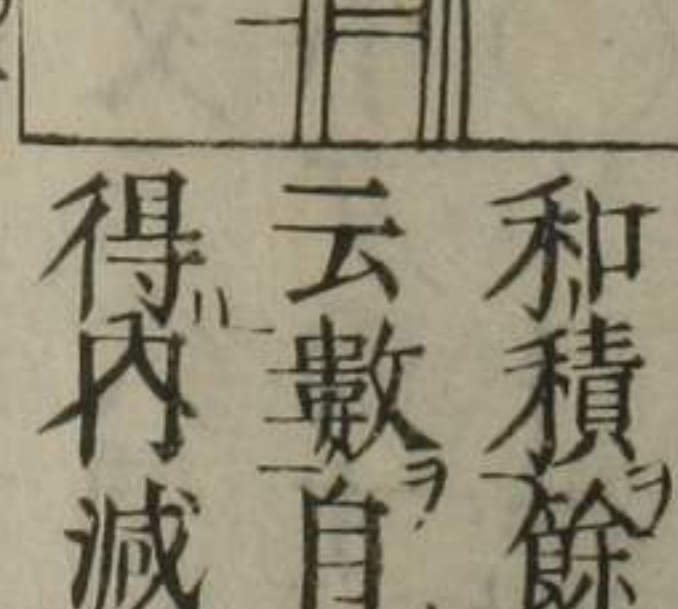 和積ヲ餘
云數ヲ自
得內減